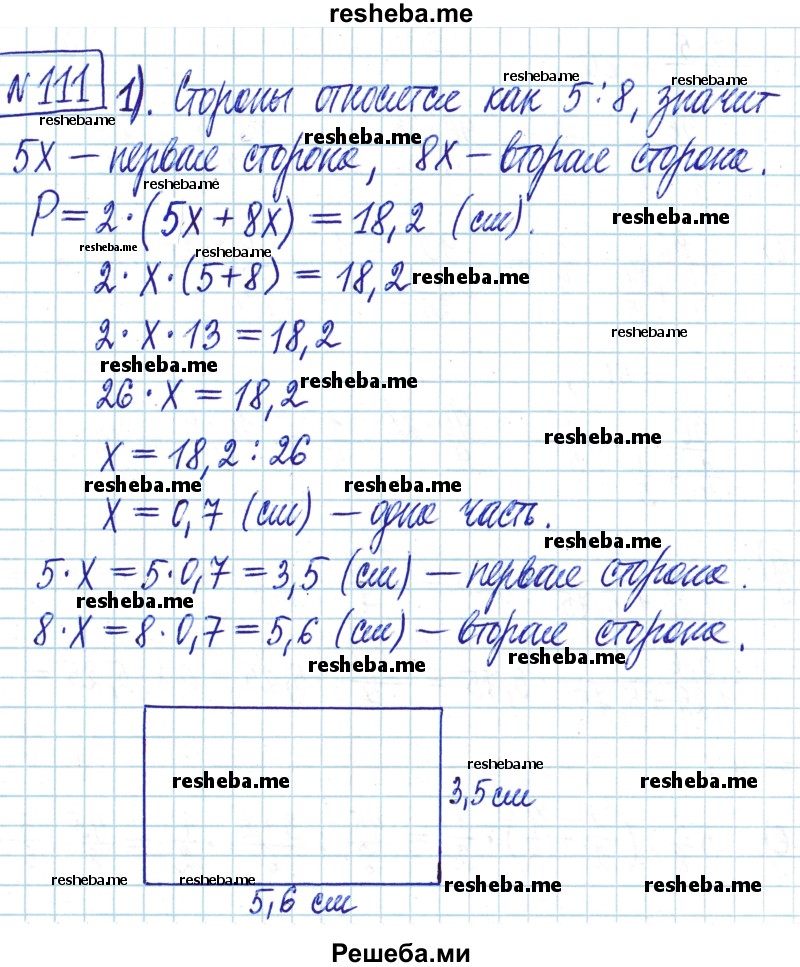 resheba.me
№111 1). Стороны относятся как 5:8, значит
5x – первая сторона, 8x – вторая сторона.
P = 2·(5x + 8x) = 18,2 (см).
2·x·(5+8) = 18,2
2·x·13 = 18,2
26·x = 18,2
x = 18,2 : 26
x = 0,7 (см) – одна часть.
5·x = 5·0,7 = 3,5 (см) – первая сторона.
8·x = 8·0,7 = 5,6 (см) – вторая сторона.
3,5 см
5,6 см
Решеба.ми